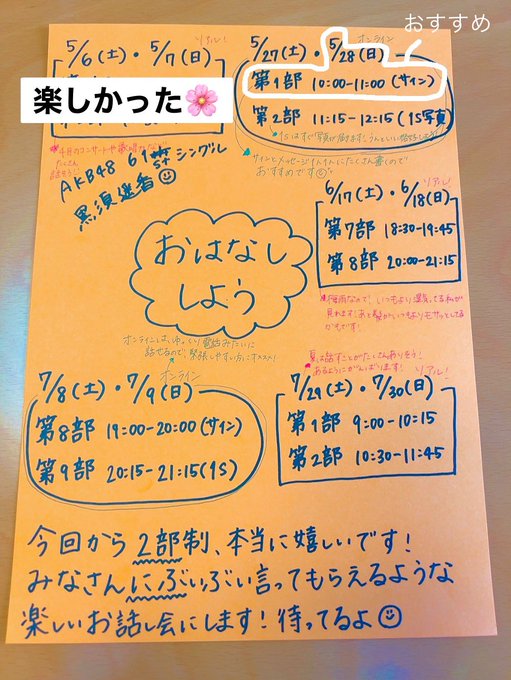 おすすめ
5/6(土)・5/7(日)
リアル!
楽しかった🌸
AKB48 61stシングル
黒須遥香☺
オンライン
5/27(土)・5/28(日)
第1部 10:00-11:00 (サイン)
第2部 11:15-12:15 (1S写真)
サインとメッセージ
たくさん書くので
おすすめです☺
リアル!
6/17(土)・6/18(日)
第7部 18:30-19:45
第8部 20:00-21:15
梅雨なので!いつもより湿気てる私が
見れます!あと髪がいつもよりモサッとしてる
かもです!
おはなし
しよう
オンラインは、ゆっくり電話みたいに
話せるので、緊張しやすい方にオススメ!
オンライン
7/8(土)・7/9(日)
第8部 19:00-20:00 (サイン)
第9部 20:15-21:15 (1S)
夏は話すことがたくさんありそう!
あるようにがんばります!
リアル!
7/29(土)・7/30(日)
第1部 9:00-10:15
第2部 10:30-11:45
今回から2部制、本当に嬉しいです!
みなさんにぶいぶい言ってもらえるような
楽しいお話し会にします!待ってるよ☺